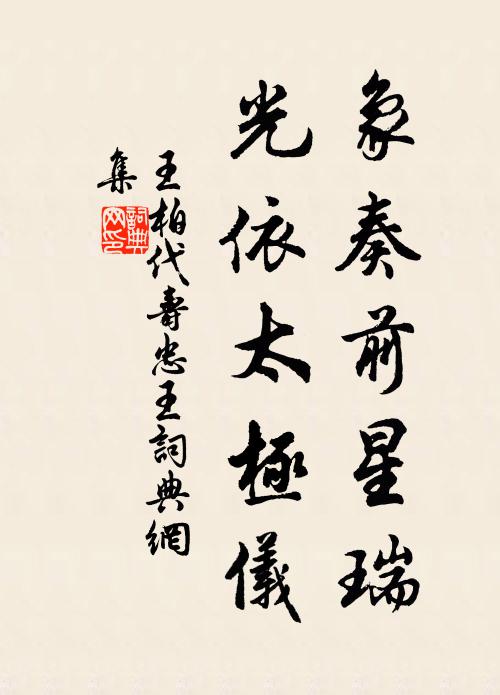 象奏前星瑞
光依太極儀
王柏代壽忠王詞典網
集
詞典
网印